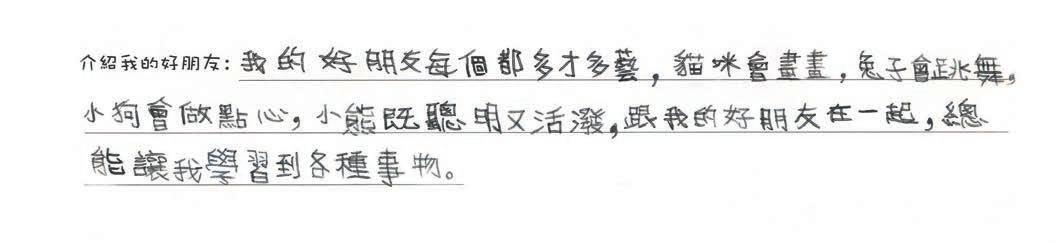 介紹我的好朋友：我的好朋友每個都多才多藝，貓咪會畫畫，兔子會跳舞，
小狗會做點心，小熊既聰明又活潑，跟我的好朋友在一起，總
能讓我學習到各種事物。